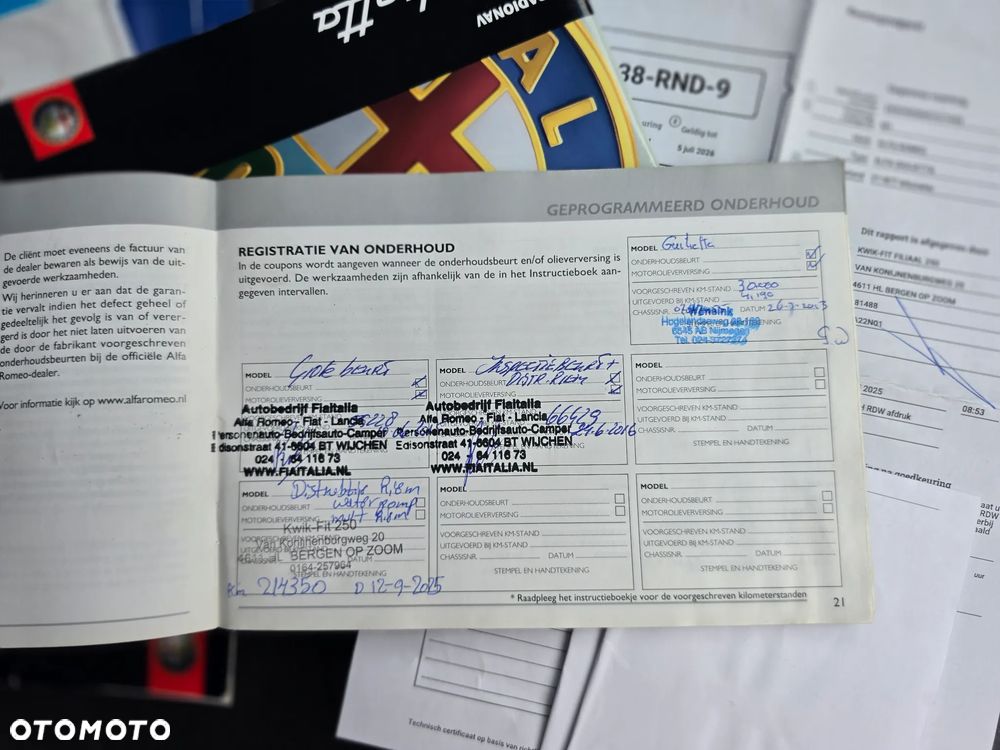 RADIONAV
AL
38-RND-9
Geldig tot
5 juli 2026
Dit rapport is afgegeven door
KWIK-FIT FILIAAL 250
VAN KONIJNENBURGWEG 20
4611 HL BERGEN OP ZOOM
81488
A22N01
2025
08:53
RDW afdruk
GEPROGRAMMEERD ONDERHOUD
De cliënt moet eveneens de factuur van
de dealer bewaren als bewijs van de uit-
gevoerde werkzaamheden.
Wij herinneren u er aan dat de garan-
tie vervalt indien het defect geheel of
gedeeltelijk het gevolg is van of verer-
gerd is door het niet laten uitvoeren van
de door de fabrikant voorgeschreven
onderhoudsbeurten bij de officiële Alfa
Romeo-dealer.
Voor informatie kijk op www.alfaromeo.nl
REGISTRATIE VAN ONDERHOUD
In de coupons wordt aangeven wanneer de onderhoudsbeurt en/of olieverversing is
uitgevoerd. De werkzaamheden zijn afhankelijk van de in het Instructieboek aan-
gegeven intervallen.
MODEL Giulietta
ONDERHOUDSBEURT
MOTOROLIEVERVERSING
VOORGESCHREVEN KM-STAND 30.000
UITGEVOERD BIJ KM-STAND
CHASSISNR. DATUM 26-7-2013
Wensink
6545 AB Nijmegen
Grote beurt
ONDERHOUDSBEURT
MOTOROLIEVERVERSING
Autobedrijf Fiaitalia
Alfa Romeo - Fiat - Lancia
Personenauto-Bedrijfsauto-Camper
Edisonstraat 41-6604 BT WIJCHEN
024 - 64 116 73
WWW.FIAITALIA.NL
MODEL Inspectiebeurt +
ONDERHOUDSBEURT Distr. Riem
MOTOROLIEVERVERSING
Autobedrijf Fiaitalia
Alfa Romeo - Fiat - Lancia 66629
Personenauto-Bedrijfsauto-Camper 21-6-2016
Edisonstraat 41-6604 BT WIJCHEN
024 - 64 116 73
WWW.FIAITALIA.NL
MODEL
ONDERHOUDSBEURT
MOTOROLIEVERVERSING
VOORGESCHREVEN KM-STAND
UITGEVOERD BIJ KM-STAND
CHASSISNR. DATUM
STEMPEL EN HANDTEKENING
MODEL Distributie Riem
ONDERHOUDSBEURT waterpomp
MOTOROLIEVERVERSING mult Riem
Kwik-Fit 250
Van Konijnenburgweg 20
4611 HL BERGEN OP ZOOM
0164-257964
STEMPEL EN HANDTEKENING
Km 214350 D 12-9-2025
MODEL
ONDERHOUDSBEURT
MOTOROLIEVERVERSING
VOORGESCHREVEN KM-STAND
UITGEVOERD BIJ KM-STAND
CHASSISNR. DATUM
STEMPEL EN HANDTEKENING
MODEL
ONDERHOUDSBEURT
MOTOROLIEVERVERSING
VOORGESCHREVEN KM-STAND
UITGEVOERD BIJ KM-STAND
CHASSISNR. DATUM
STEMPEL EN HANDTEKENING
* Raadpleeg het instructieboekje voor de voorgeschreven kilometerstanden
21
OTOMOTO